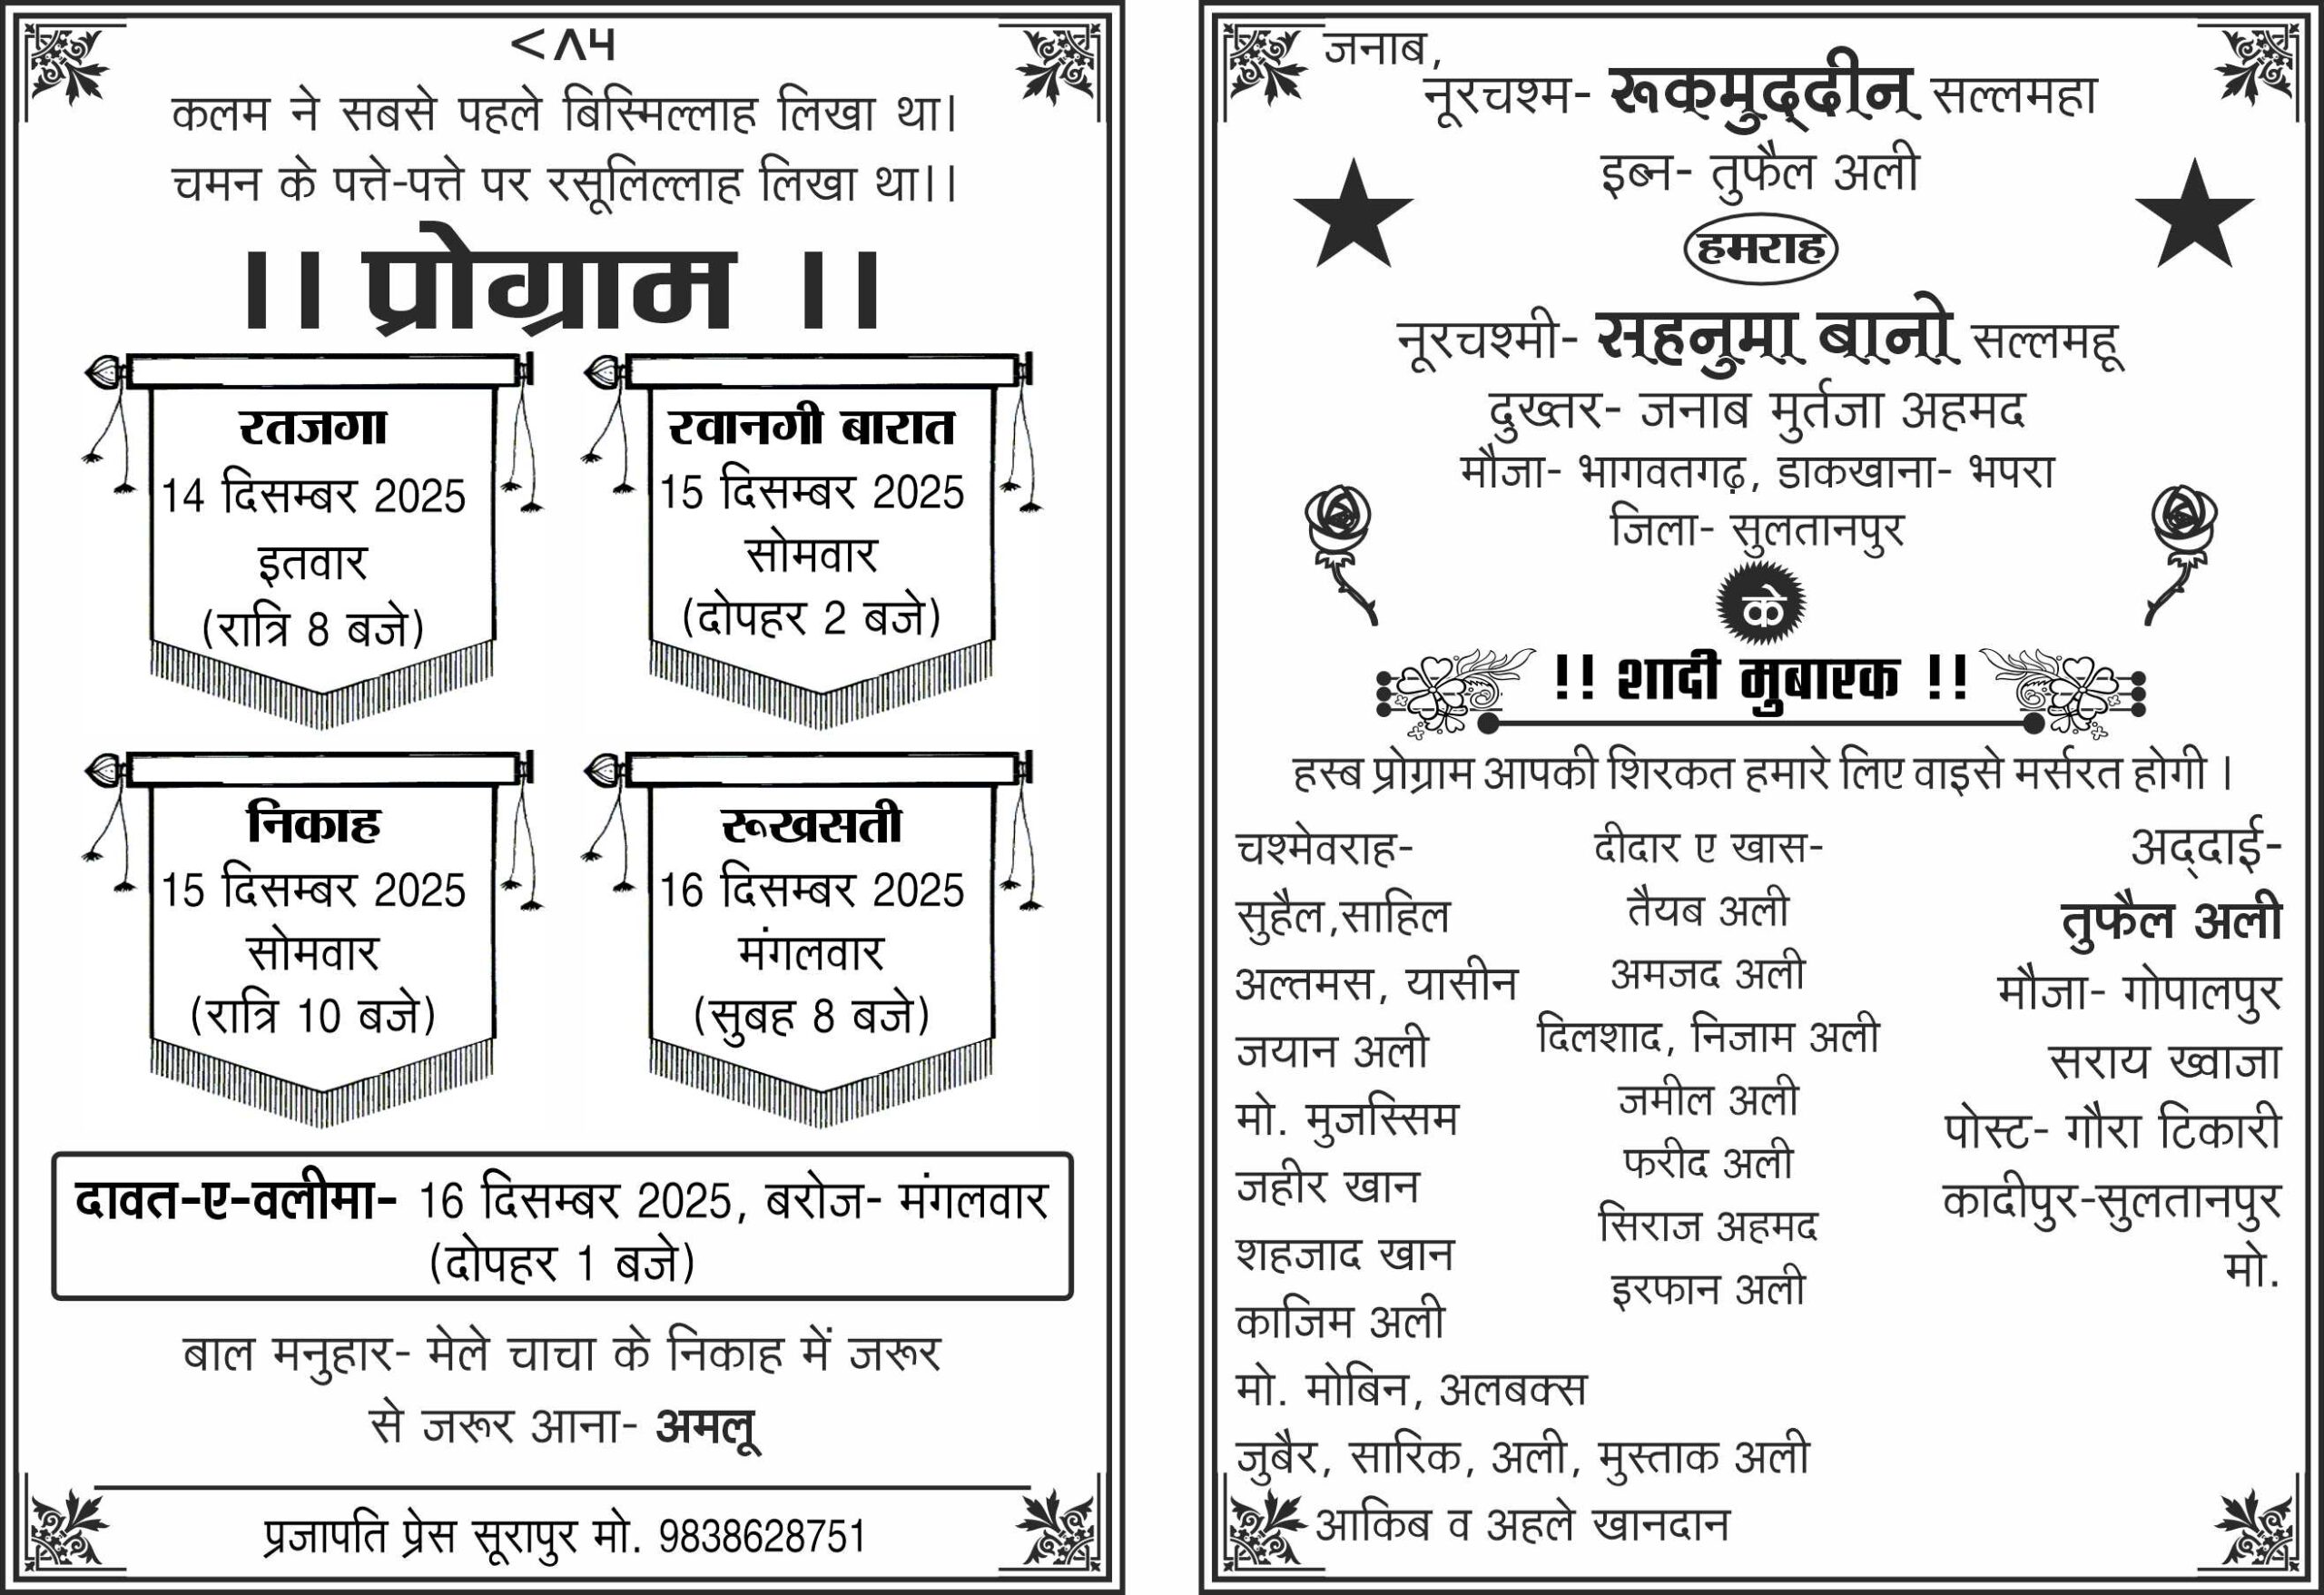 <ʌ५
कलम ने सबसे पहले बिस्मिल्लाह लिखा था।
चमन के पत्ते-पत्ते पर रसूलिल्लाह लिखा था।।
।। प्रोग्राम ।।
रतजगा
14 दिसम्बर 2025
इतवार
(रात्रि 8 बजे)
रवानगी बारात
15 दिसम्बर 2025
सोमवार
(दोपहर 2 बजे)
निकाह
15 दिसम्बर 2025
सोमवार
(रात्रि 10 बजे)
रूखसती
16 दिसम्बर 2025
मंगलवार
(सुबह 8 बजे)
दावत-ए-वलीमा- 16 दिसम्बर 2025, बरोज- मंगलवार
(दोपहर 1 बजे)
बाल मनुहार- मेले चाचा के निकाह में जरूर
से जरूर आना- अमलू
प्रजापति प्रेस सूरापुर मो. 9838628751
जनाब,
नूरचश्म- रूकमुद्दीन सल्लमहा
इब्न- तुफैल अली
हमराह
नूरचश्मी- सहनुमा बानो सल्लमहू
दुख्तर- जनाब मुर्तजा अहमद
मौजा- भागवतगढ़, डाकखाना- भपरा
जिला- सुलतानपुर
के
!! शादी मुबारक !!
हस्ब प्रोग्राम आपकी शिरकत हमारे लिए वाइसे मर्सरत होगी ।
चश्मेवराह-
सुहैल,साहिल
अल्तमस, यासीन
जयान अली
मो. मुजस्सिम
जहीर खान
शहजाद खान
काजिम अली
मो. मोबिन, अलबक्स
जुबैर, सारिक, अली, मुस्ताक अली
आकिब व अहले खानदान
दीदार ए खास-
तैयब अली
अमजद अली
दिलशाद, निजाम अली
जमील अली
फरीद अली
सिराज अहमद
इरफान अली
अद्दाई-
तुफैल अली
मौजा- गोपालपुर
सराय ख्वाजा
पोस्ट- गौरा टिकारी
कादीपुर-सुलतानपुर
मो.